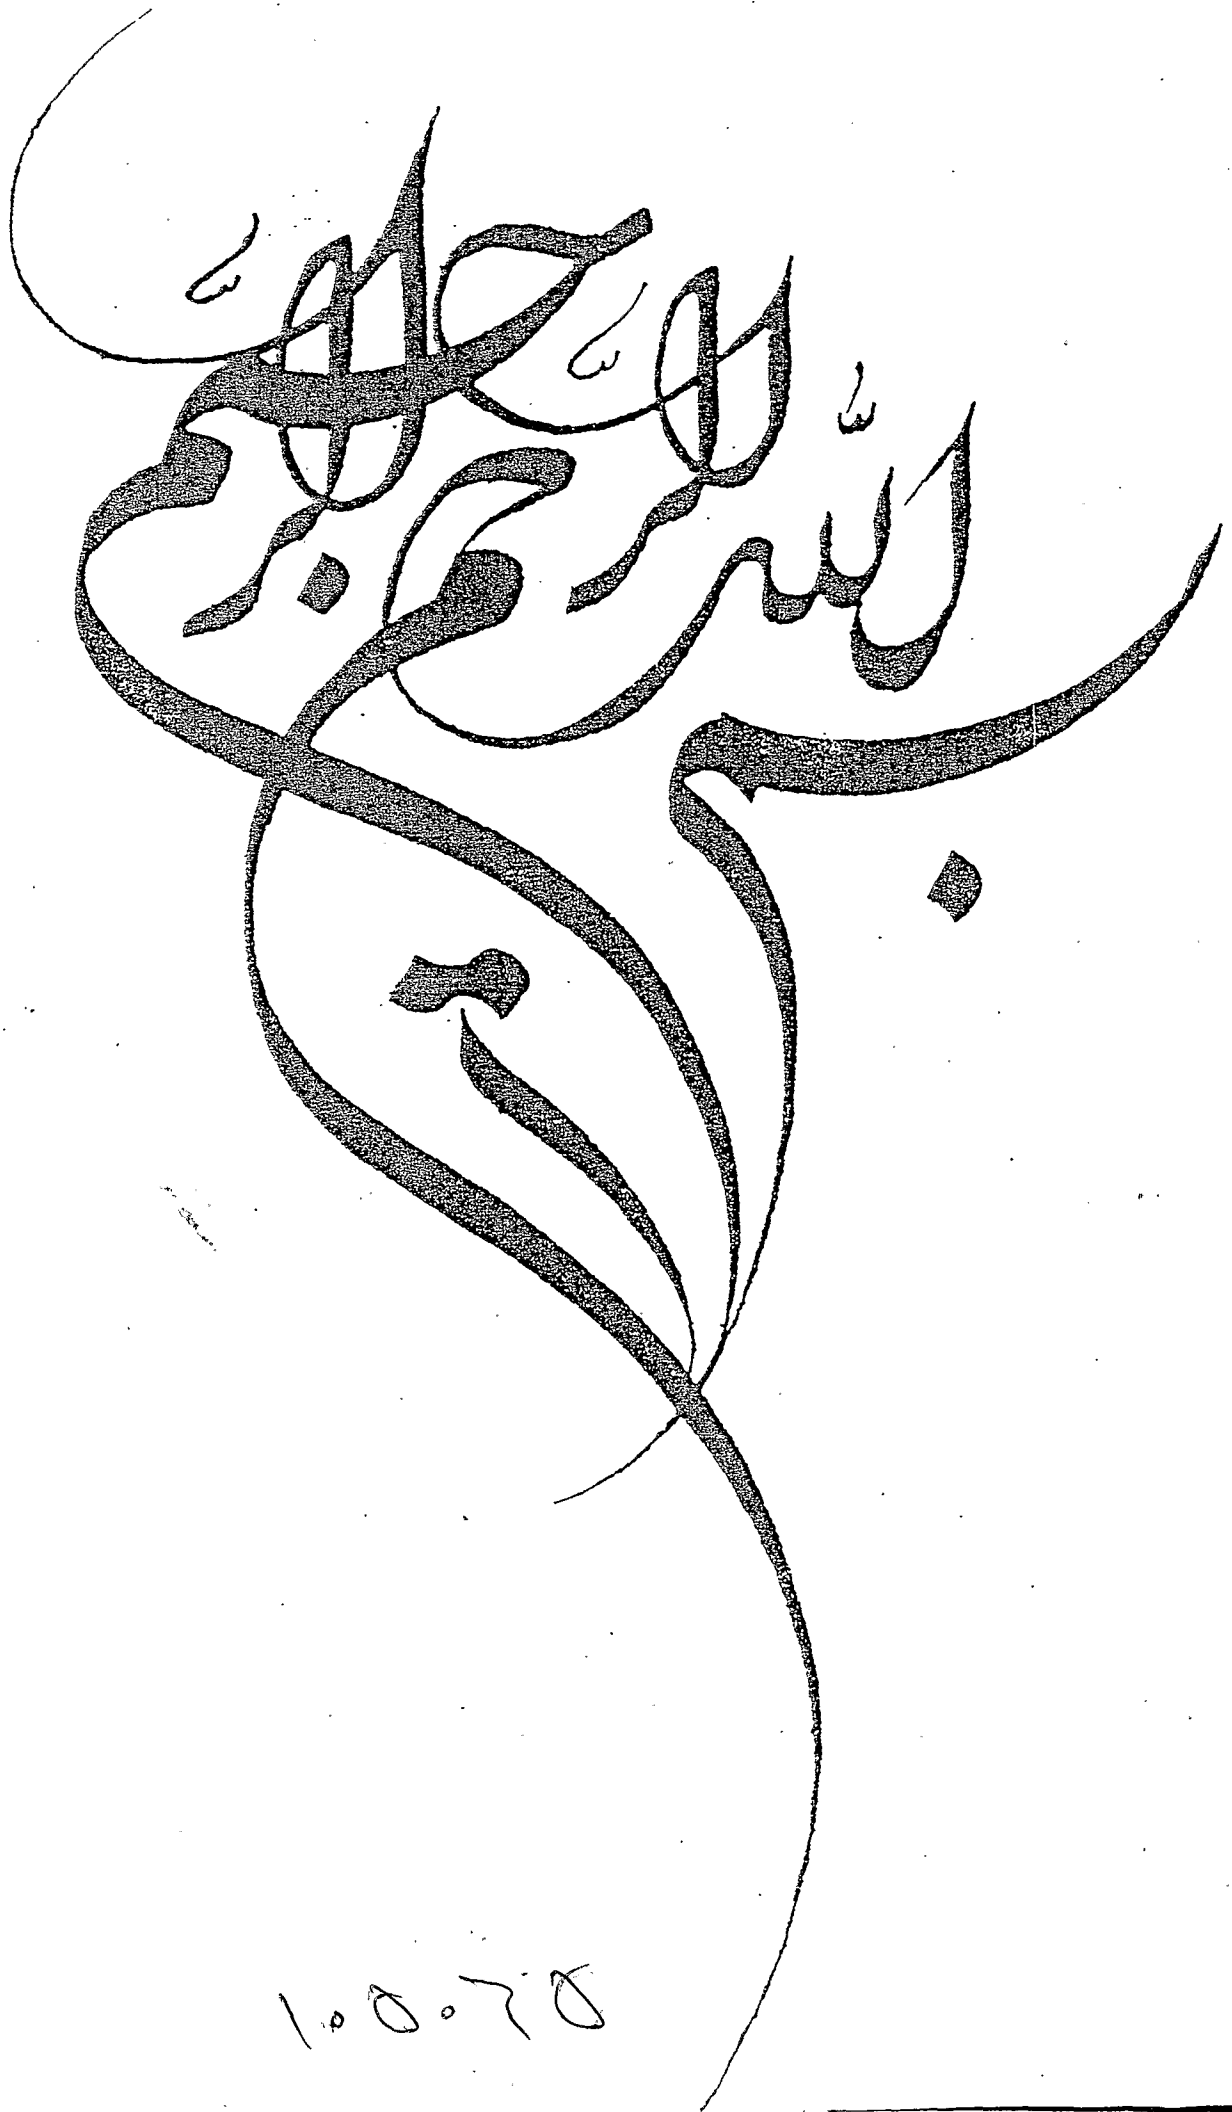 بسم الله الرحمن الرحيم
۱۰۵۰۶۵